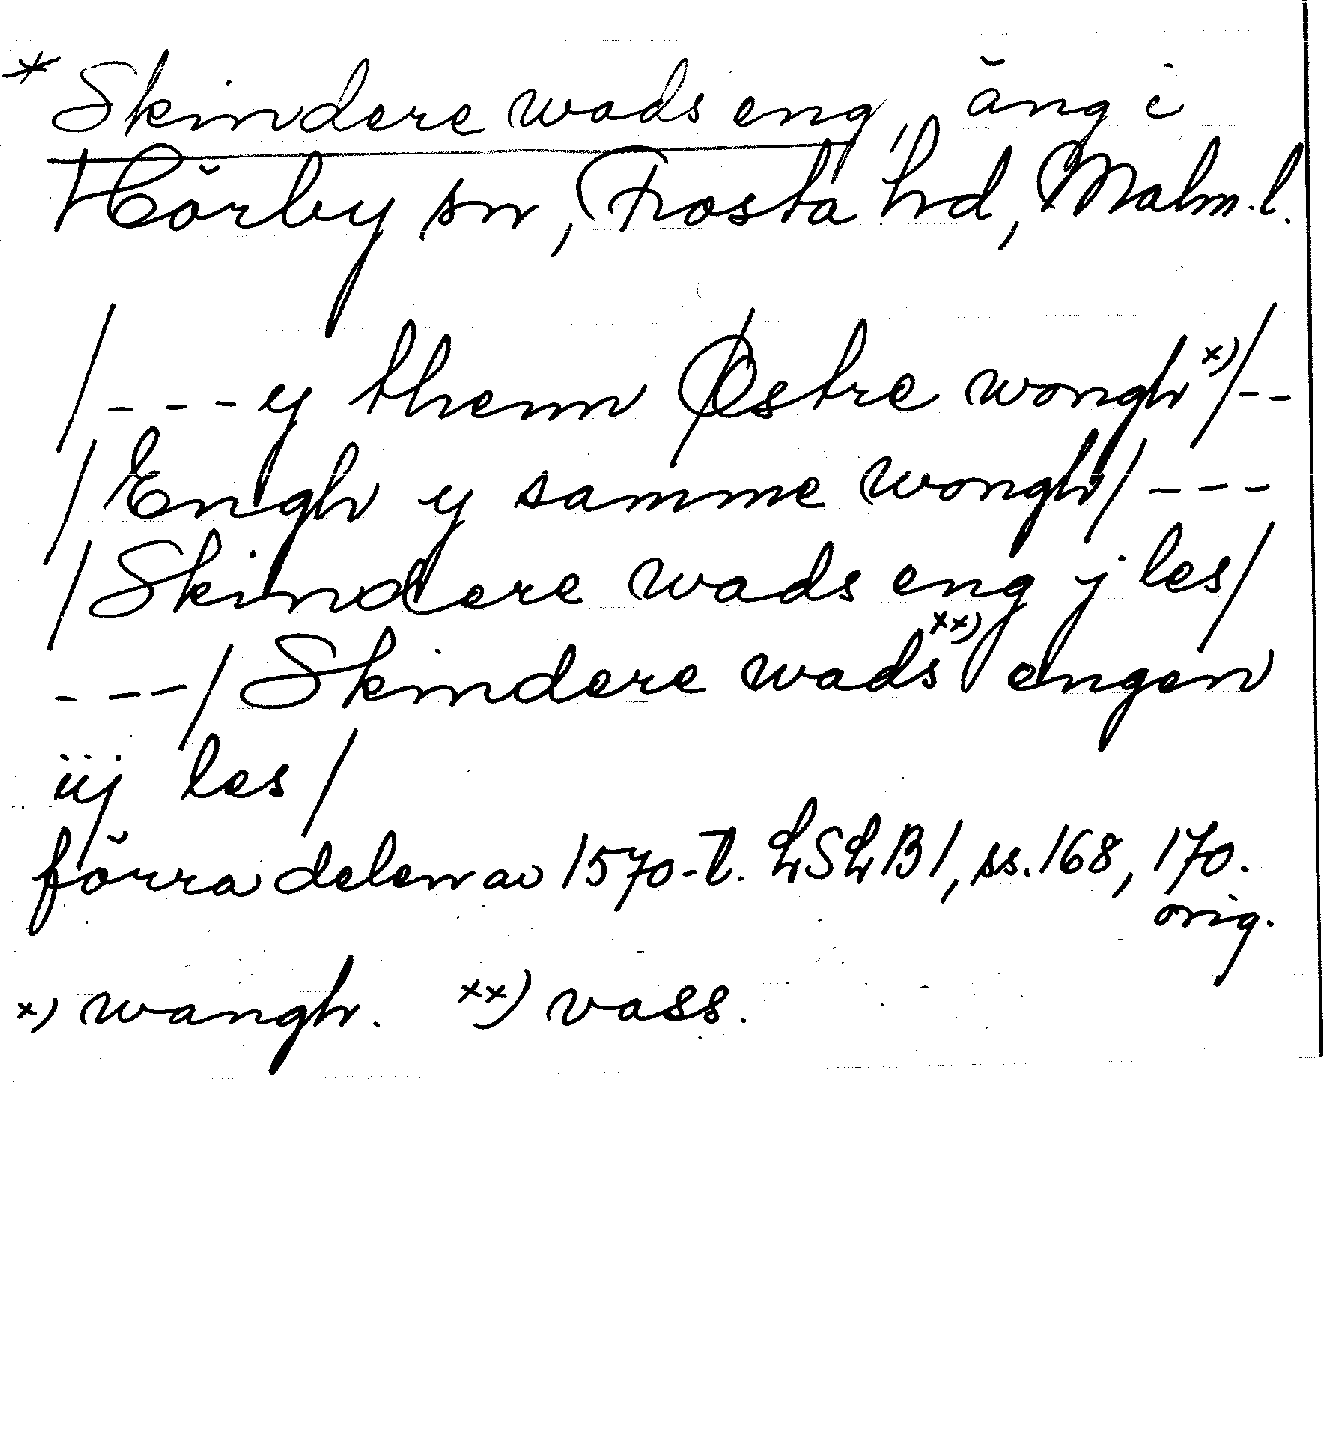 * Skindere wads eng, äng i
Hörby sn, Frosta hd, Malm.l.
/---y thenn Østre wongh x)/--
/Engh y samme wongh/---
/Skindere wads eng j les/
---/Skindere wads xx) engen
iij les/
förra delen av 1570-t. LSLB1, ss.168, 170.
orig.
x) wangh. xx) vass.